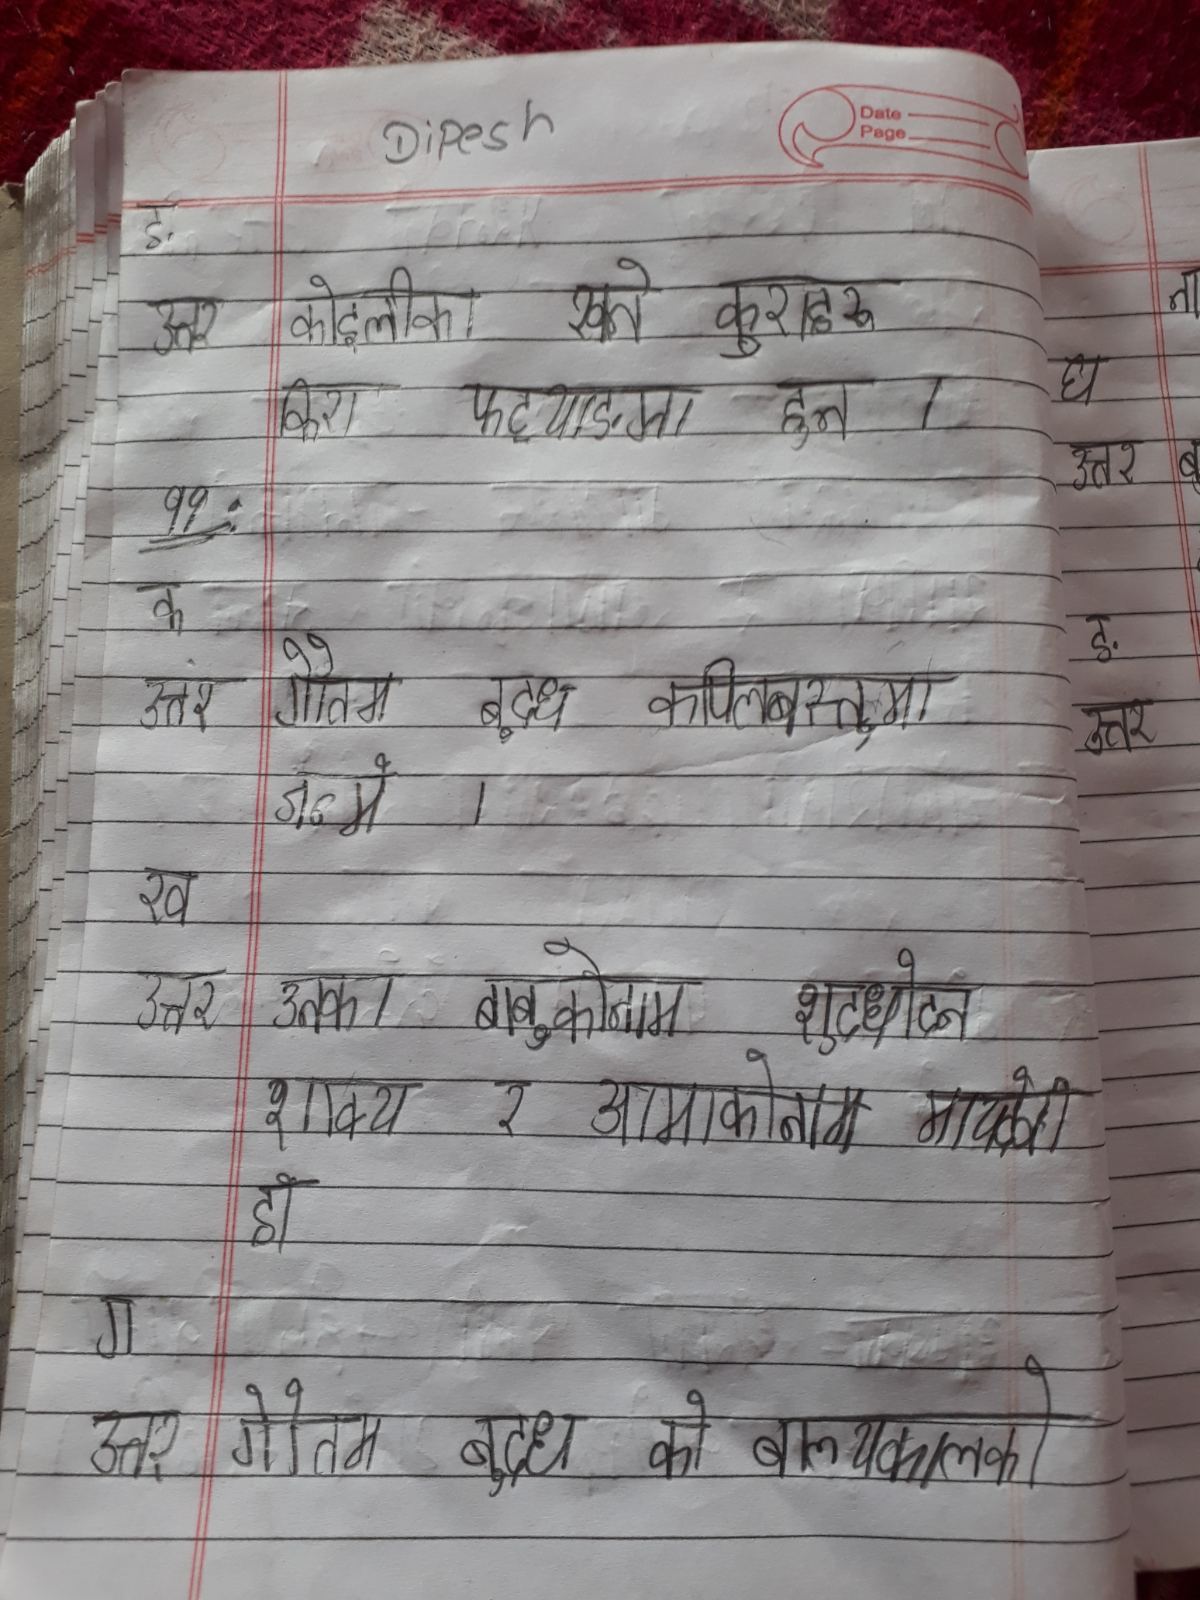 Dipesh
Date
Page
ङ.
उत्तर कोइलीका खाने कुराहरू
किरा फट्याङ्मा हुन ।
११ :
क
उत्तर गौतम बुद्ध कपिलबस्तुमा
जन्मे ।
ख
उत्तर उनका बाबुकोनाम शुद्धोदन
शाक्य र आमाकोनाम मायादेवी
हो
ग
उत्तर गौतम बुद्ध को बाल्यकालको
ना
घ
उत्तर
ङ.
उत्तर